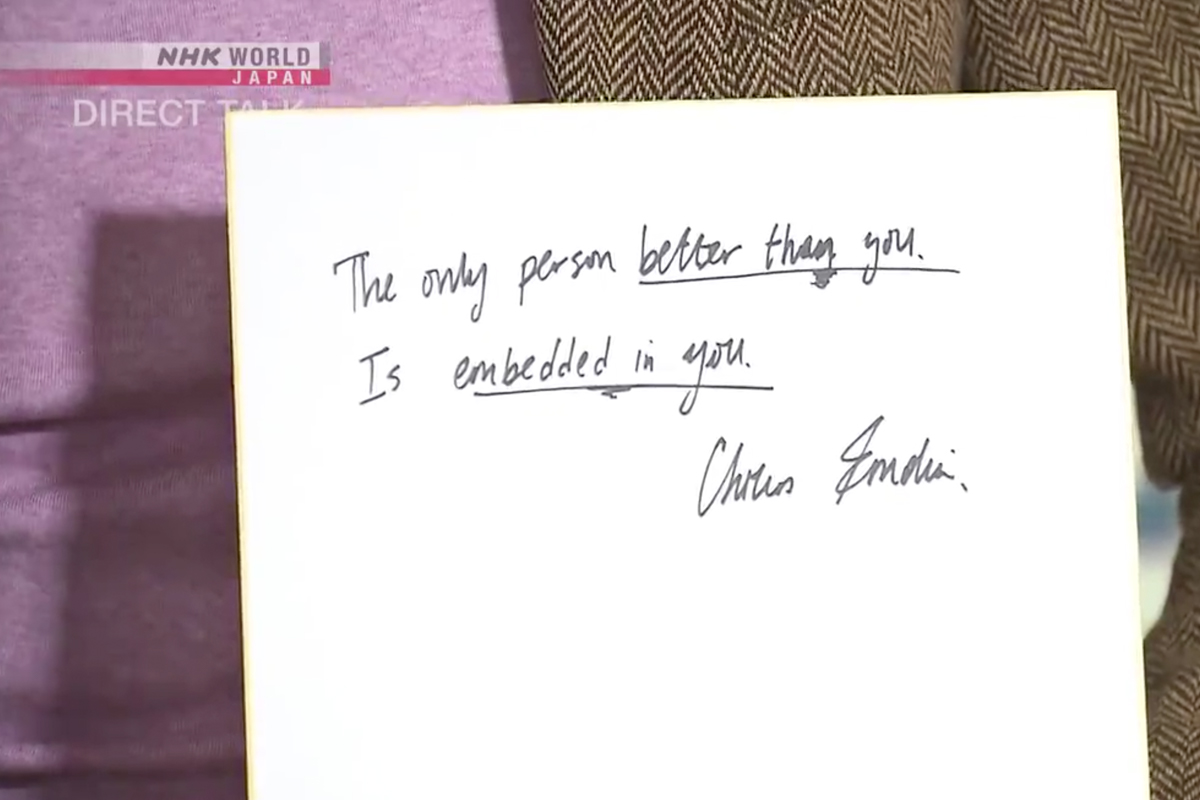 NHK WORLD
JAPAN
DIRECT TALK
The only person better than you.
Is embedded in you.